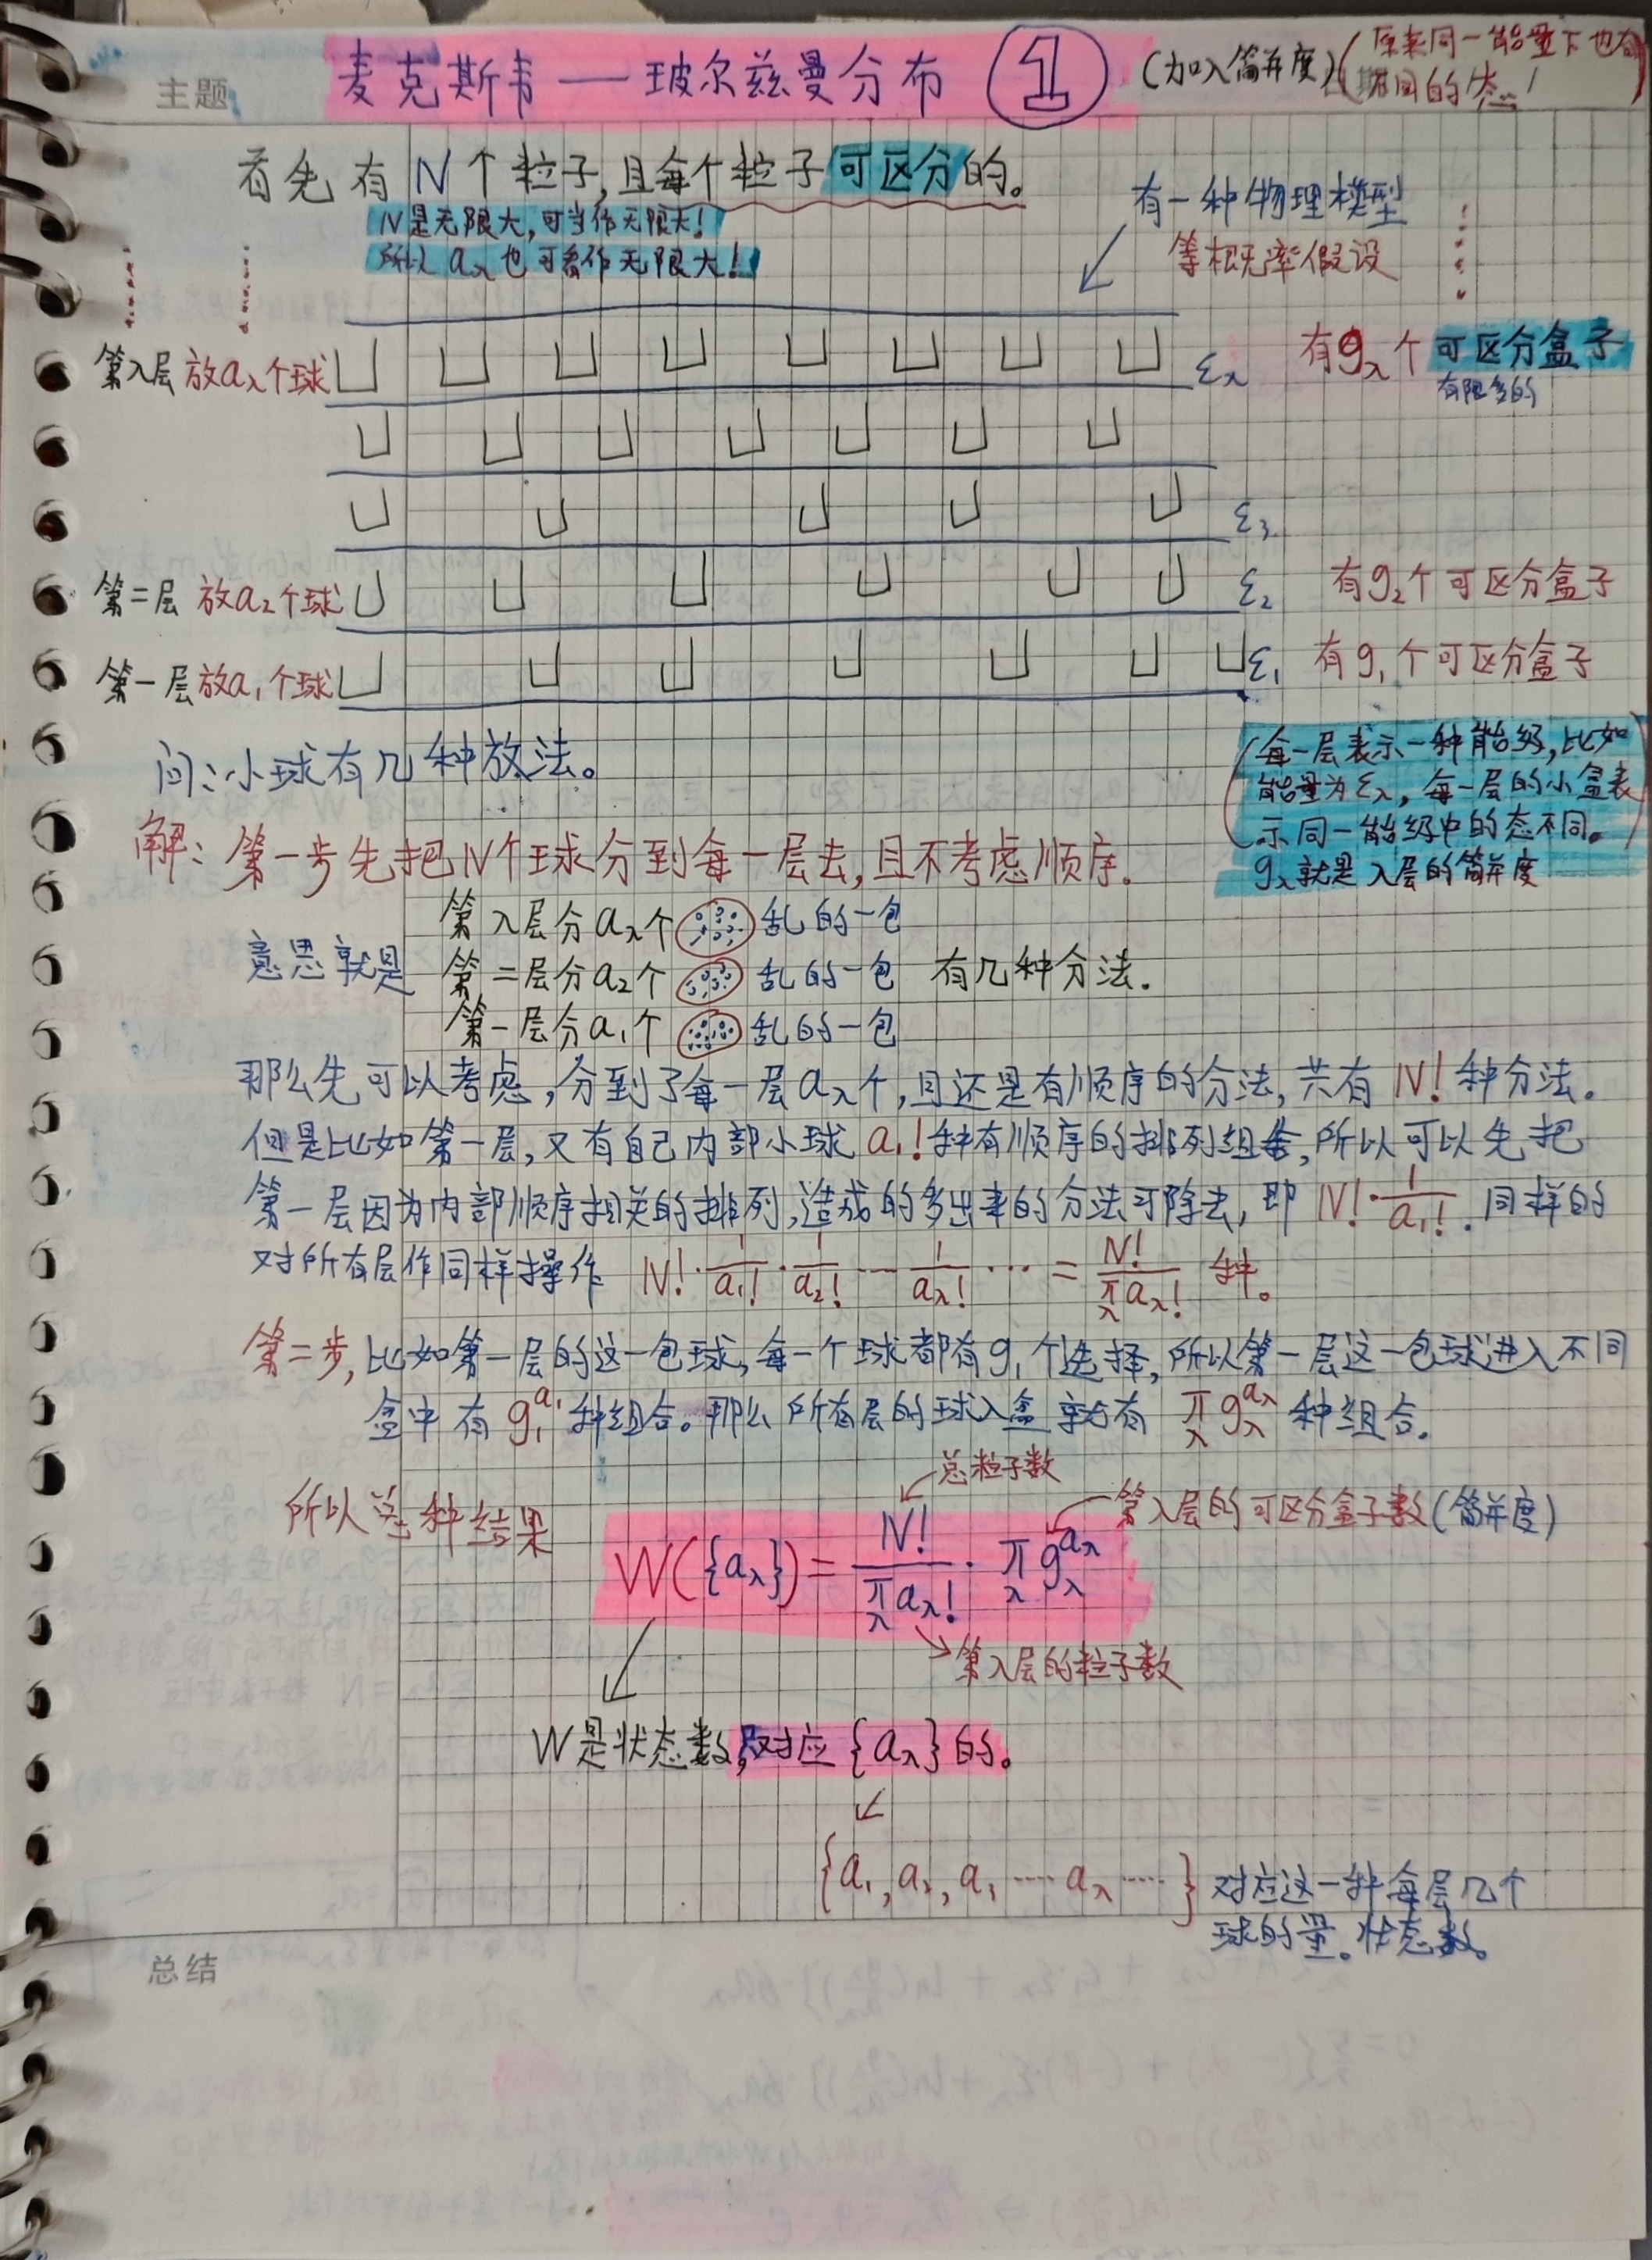 主题
麦克斯韦—玻尔兹曼分布 ① (加入简并度) (原来同一能量下也有
不同的态!)
首先有N个粒子,且每个粒子可区分的。
N是无限大,可当作无限大!
所以 aλ 也可看作无限大!
有一种物理模型
等概率假设
第λ层 放aλ个球 ελ 有gλ个可区分盒子
有限多的
ε₃
第二层 放a₂个球 ε₂ 有g₂个可区分盒子
第一层 放a₁个球 ε₁ 有g₁个可区分盒子
(每一层表示一种能级,比如
能量为ελ,每一层的小盒表
示同一能级中的态不同。
gλ就是λ层的简并度
问:小球有几种放法。
解:第一步先把N个球分到每一层去,且不考虑顺序.
第λ层分aλ个 乱的一包
意思就是 第二层分a₂个 乱的一包 有几种分法.
第一层分a₁个 乱的一包
那么先可以考虑,分到了每一层aλ个,且还是有顺序的分法,共有 N! 种分法.
但是比如第一层,又有自己内部小球 a₁! 种有顺序的排列组合,所以可以先把
第一层因为内部顺序相关的排列,造成的多出来的分法可除去,即 N!·1/a₁!. 同样的
对所有层作同样操作 N!·1/a₁!·1/a₂!---1/aλ!··· = N!/∏λ aλ! 种。
第二步,比如第一层的这一包球,每一个球都有g₁个选择,所以第一层这一包球进入不同
盒中有 g₁^a₁ 种组合。那么所有层的球入盒就有 ∏λ gλ^aλ 种组合.
总粒子数
第λ层的可区分盒子数(简并度)
所以总种结果 W({aλ}) = N!/∏λ aλ! · ∏λ gλ^aλ
第λ层的粒子数
W是状态数,对应{aλ}的。
{a₁, a₂, a₃ ---- aλ ----} 对应这一种每层几个
球的量。状态数。
总结